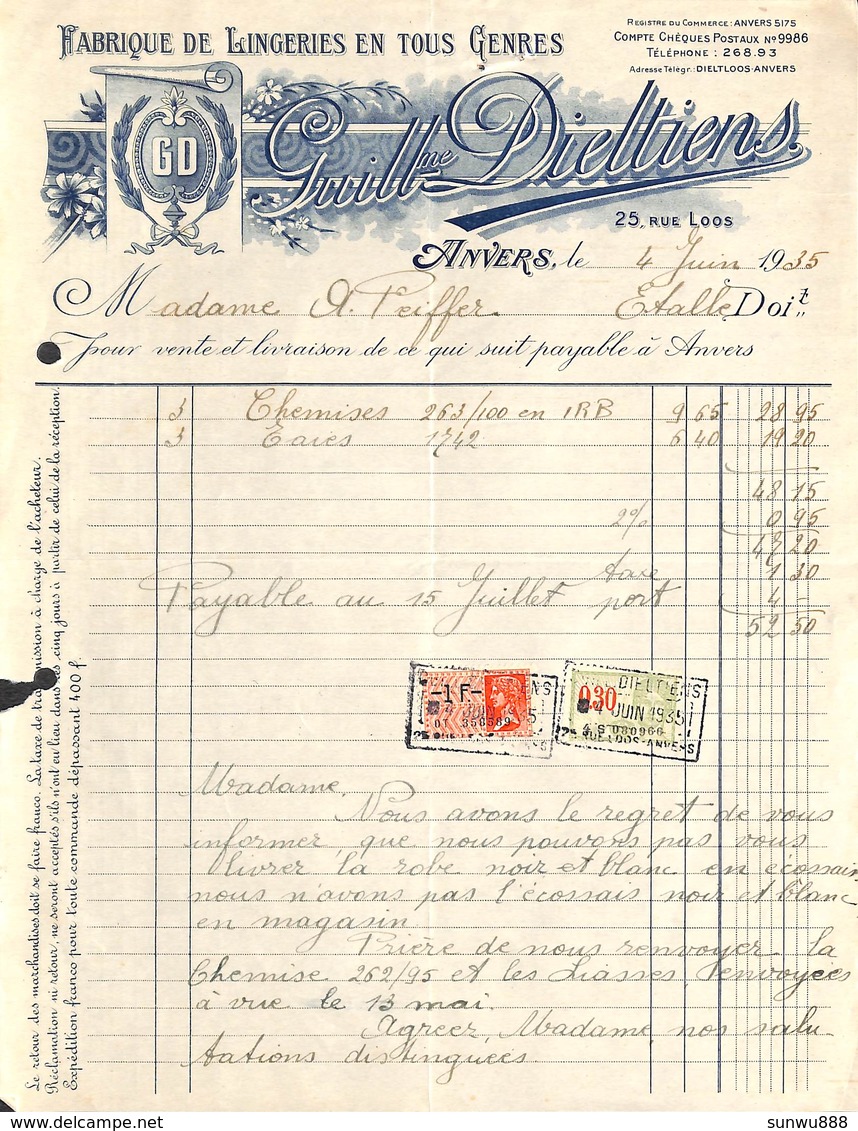 FABRIQUE DE LINGERIES EN TOUS GENRES
REGISTRE DU COMMERCE: ANVERS 5175
COMPTE CHÈQUES POSTAUX Nº 9986
TÉLÉPHONE : 268.93
Adresse Télégr.: DIELTLOOS-ANVERS
GD
Guill.me Dieltiens.
25, RUE LOOS
ANVERS, le 4 Juin 1935
Madame A. Peiffer Etalle Doit
pour vente et livraison de ce qui suit payable à Anvers
3 Chemises 263/100 en 1RB 9 65 28 95
3 1742 6 40 19 20
48 15
2% 0 95
47 20
taxe 1 30
Payable au 15 Juillet port 4 -
52 50
-1 F-
4 JUIN 1935
OT 358589
DIELTIENS
0.30
4 JUIN 1935
4 S 080966
25 RUE LOOS-ANVERS
Madame,
Nous avons le regret de vous
informer, que nous pouvons pas vous
livrer la robe noir et blanc en écossais
nous n'avons pas l'écossais noir et blanc
en magasin.
Prière de nous renvoyer la
Chemise 262/95 et les liasses, envoyées
à vue le 13 mai.
Agreez, Madame, nos salu-
tations distinguées.
Le retour des marchandises doit se faire franco. La taxe de transmission à charge de l'acheteur.
Réclamation ni retour, ne seront acceptés s'ils n'ont eu lieu dans les cinq jours à partir de celui de la réception.
Expédition franco pour toute commande dépassant 400 f.
sunwu888